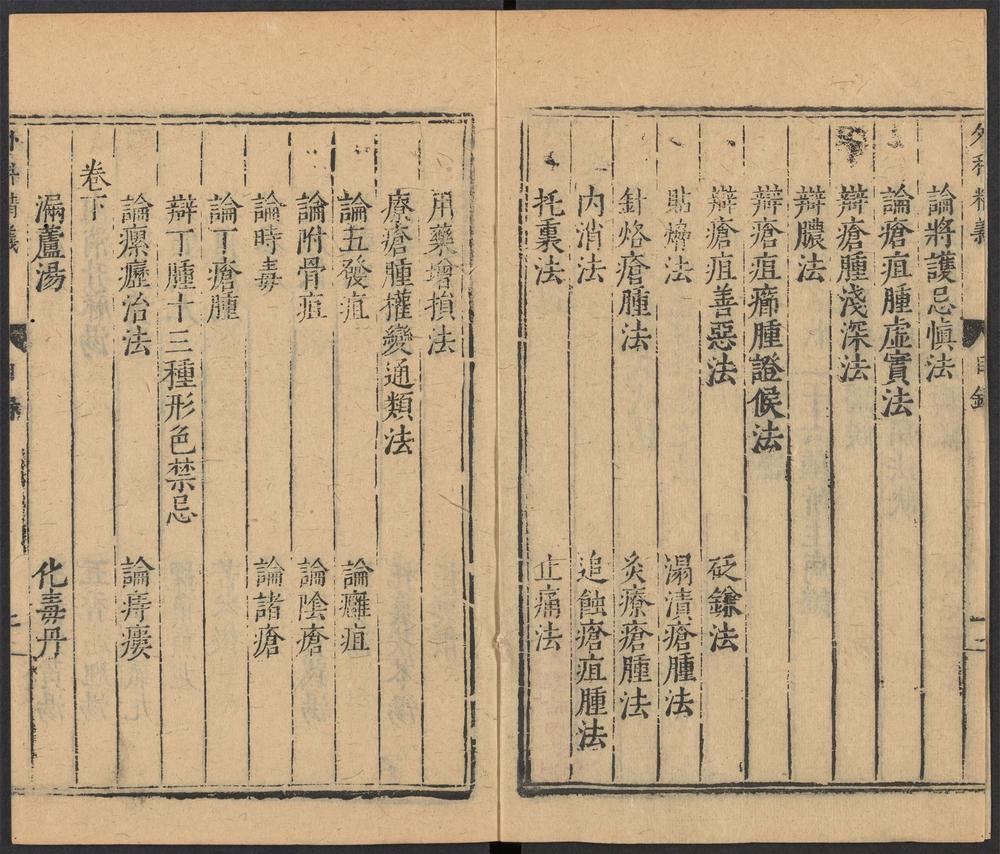 外科精義
目錄
二
論將護忌慎法
論瘡疽腫虛實法
辯瘡腫淺深法
辯膿法
辯瘡疽癤腫證候法
辯瘡疽善惡法 砭鎌法
貼熁法 溻漬瘡腫法
針烙瘡腫法 灸療瘡腫法
内消法 追蝕瘡疽腫法
托裏法 止痛法
用藥增損法
療瘡腫權變通類法
論五發疽 論癰疽
論附骨疽 論陰瘡
論時毒 論諸瘡
論丁瘡腫
辯丁腫十三種形色禁忌
論瘰癧治法 論痔瘻
卷下
漏蘆湯 化毒丹